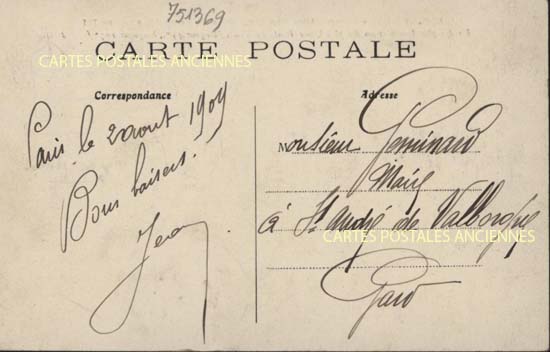 751369
CARTE POSTALE
CARTES POSTALES ANCIENNES
Correspondance
Adresse
Paris. le 2 aout 1909
Bons baisers.
Jean
Monsieur
Maire
à St André de Valborgne
CARTES POSTALES ANCIENNES
Gard